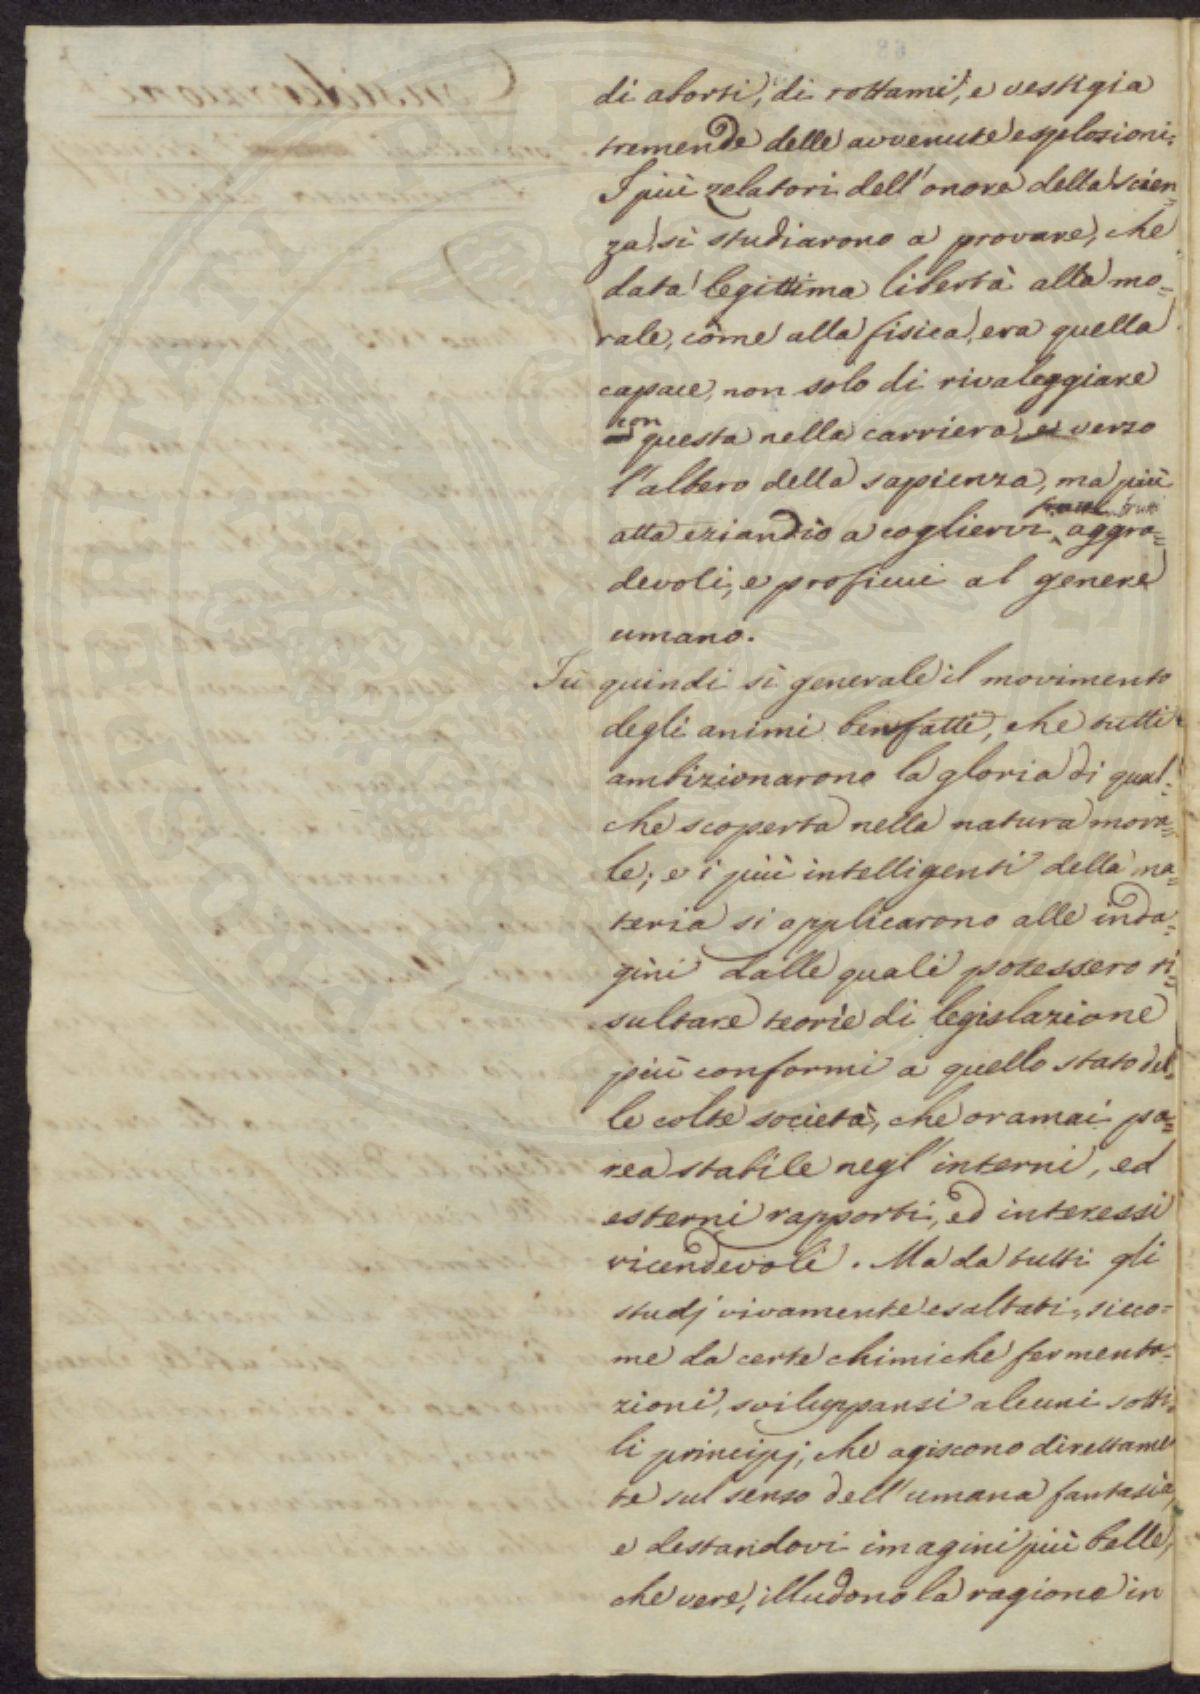 di aborti, di rottami, e vestigia
tremende delle avvenute esplosioni.
I più zelatori dell'onore della scien=
za si studiarono a provare, che
data legittima libertà alla mo=
rale, come alla fisica, era quella
capace, non solo di rivaleggiare
con questa nella carriera verso
l'albero della sapienza, ma più
atta eziandio a cogliervi frutti aggra=
devoli, e proficui al genere
umano.
Fu quindi sì generale il movimento
degli animi benfatti, che tutti
ambizionarono la gloria di qual=
che scoperta nella natura mora=
le; e i più intelligenti della ma=
teria si applicarono alle inda=
gini dalle quali potessero ri=
sultare teorie di legislazione
più conformi a quello stato del=
le colte società, che oramai pa=
rea stabile negl'interni, ed
esterni rapporti, ed interessi
vicendevoli. Ma da tutti gli
studj vivamente esaltati, sicco=
me da certe chimiche fermenta=
zioni, sviluppansi alcuni sotti=
li principj, che agiscono direttame
te sul senso dell'umana fantasia,
e destandovi imagini più belle,
che vere, illudono la ragione in